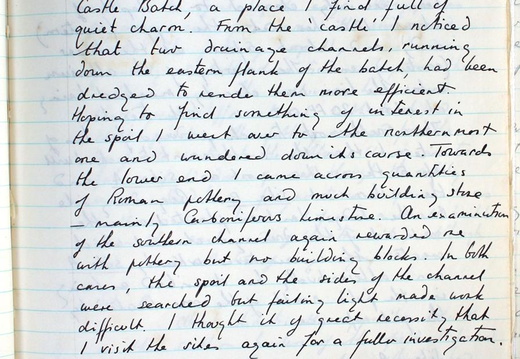 Castle Batch, a place I find full of
quiet charm. From the 'castle' I noticed
that two drainage channels, running
down the eastern flank of the batch, had been
dredged to rende them more efficient
Hoping to find something of interest in
the spoil I went over to the northernmost
one and wandered down its corse. Towards
the lower end I came across quantities
of Roman pottery and much building stone
– mainly Carboniferous limestone. An examination
of the southern channel again rewarded me
with pottery but no building blocks. In both
cases, the spoil and the sides of the channel
were searched but failing light made work
difficult. I thought it of great necessity that
I visit the sites again for a fuller investigation.